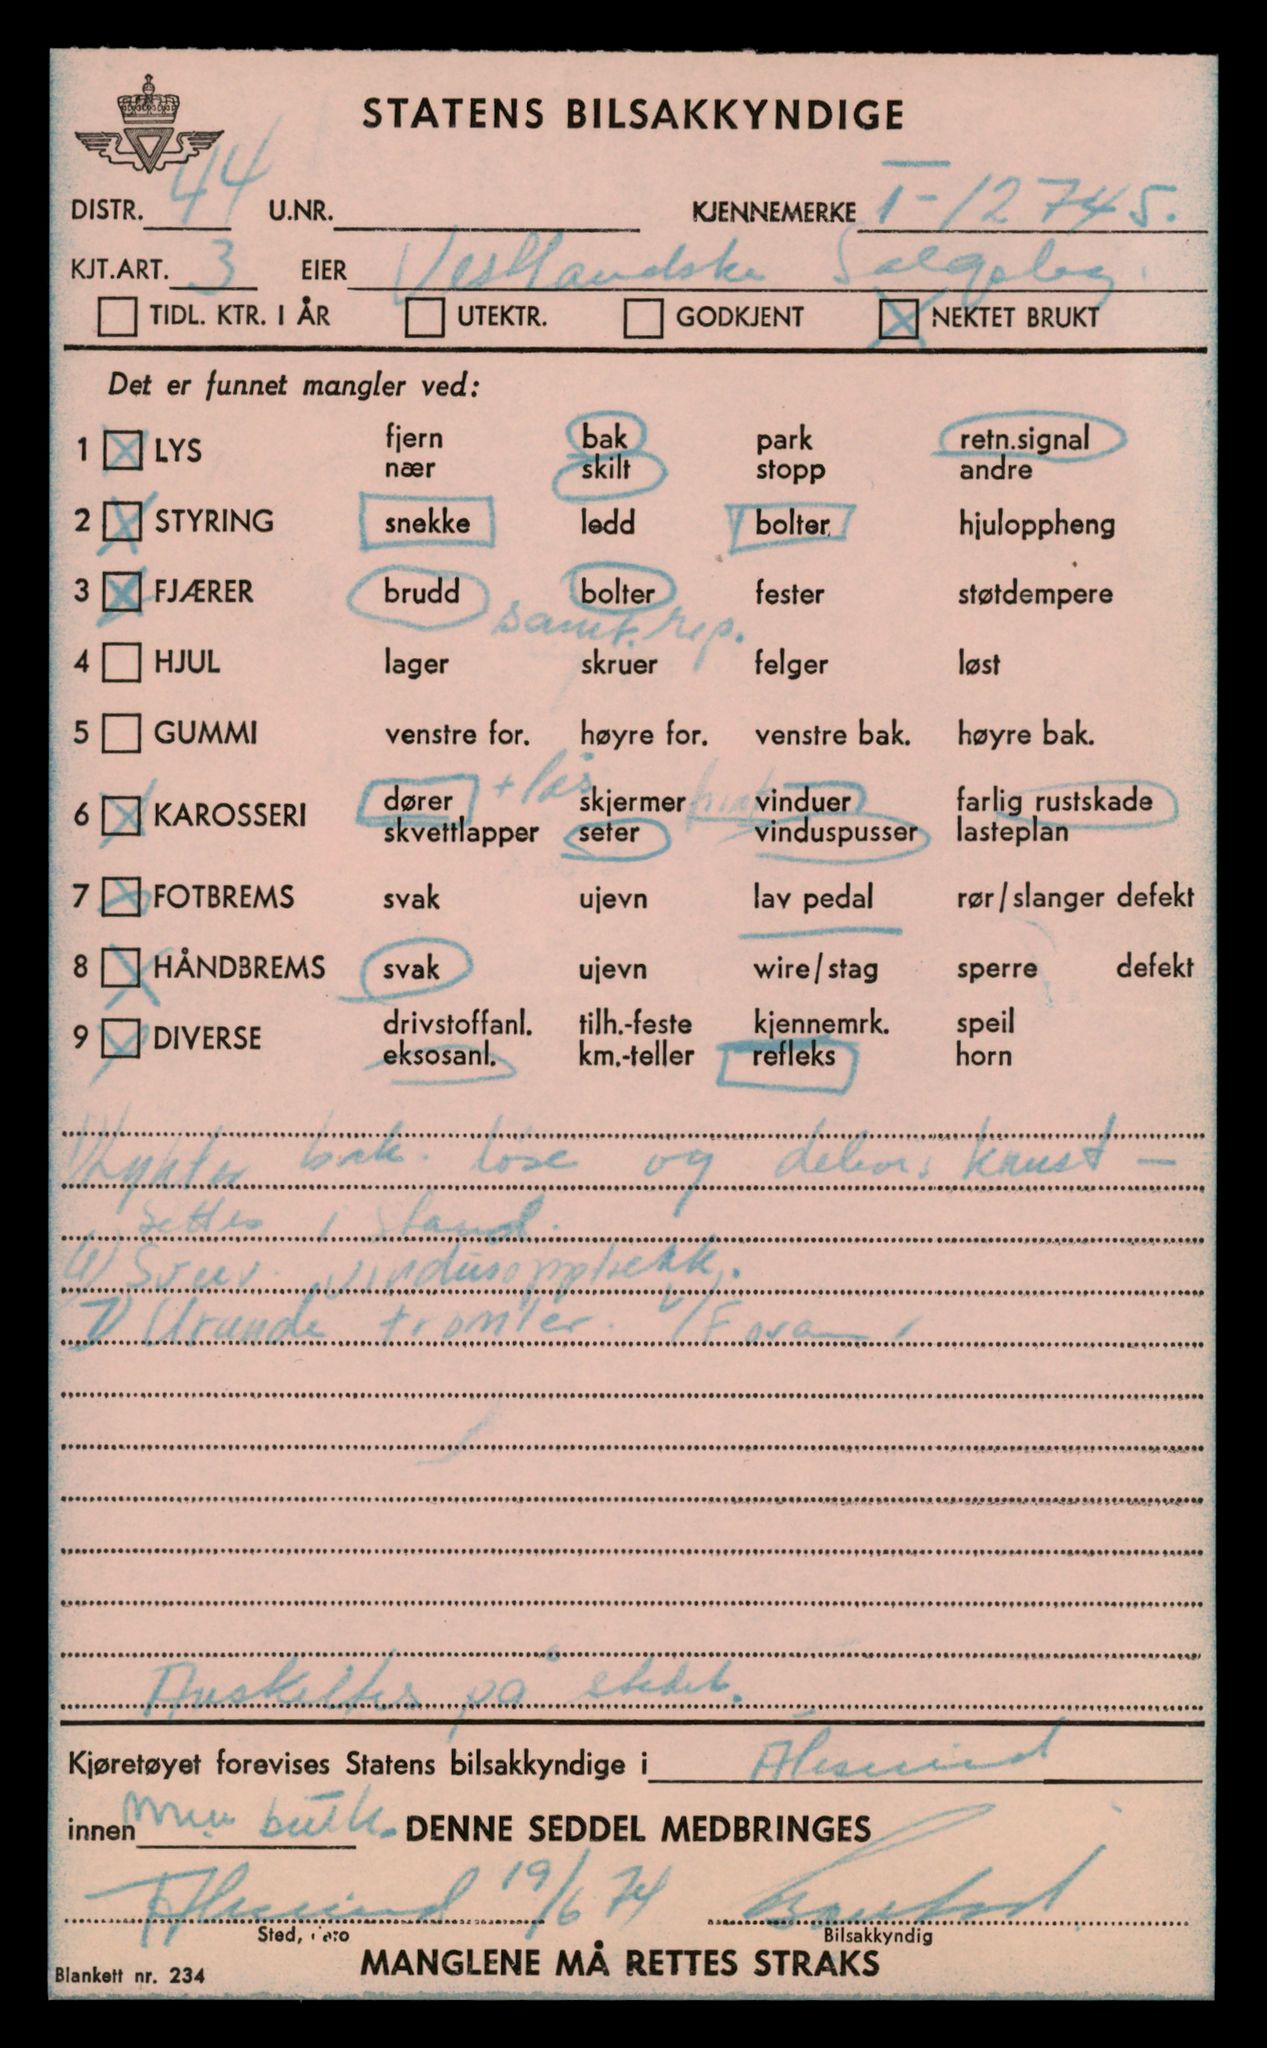 STATENS BILSAKKYNDIGE
DISTR. 44 U.NR. KJENNEMERKE T-12745.
KJT.ART. 3 EIER Vestlandske Salgslag
TIDL. KTR. I ÅR UTEKTR. GODKJENT X NEKTET BRUKT
Det er funnet mangler ved:
1 X LYS fjern bak park retn.signal
nær skilt stopp andre
2 X STYRING snekke ledd bolter hjuloppheng
3 X FJÆRER brudd bolter fester støtdempere
samt. rep.
4 HJUL lager skruer felger løst
5 GUMMI venstre for. høyre for. venstre bak. høyre bak.
+ lås
6 X KAROSSERI dører skjermer vinduer farlig rustskade
skvettlapper seter vinduspusser lasteplan
7 X FOTBREMS svak ujevn lav pedal rør/slanger defekt
8 X HÅNDBREMS svak ujevn wire/stag sperre defekt
9 X DIVERSE drivstoffanl. tilh.-feste kjennemrk. speil
eksosanl. km.-teller refleks horn
1) Lykter bak løse og delvis knust -
settes i stand.
6) Sveiv vindusopptrekk.
7) Urunde tromler. v/Foran
Avskiltes på stedet.
Kjøretøyet forevises Statens bilsakkyndige i Ålesund
innen DENNE SEDDEL MEDBRINGES
Ålesund 19/6 74
Sted, dato Bilsakkyndig
Blankett nr. 234 MANGLENE MÅ RETTES STRAKS